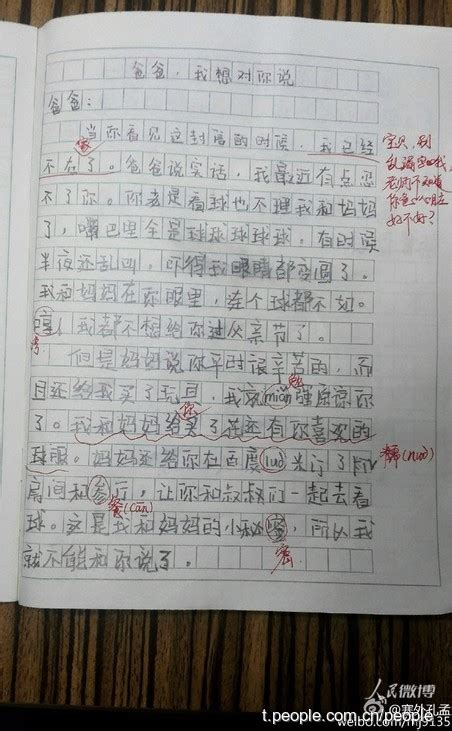 爸爸，我想对你说
爸爸：
当你看见这封信的时候，我已经
不在了。爸爸说实话，我最近有点忍
不了你。你老是看球也不理我和妈妈
了，嘴巴里全是球球球球球。有时候
半夜还乱叫，吓得我眼睛都变圆了。
我和妈妈在你眼里，连个球都不如。
我都不想给你过父亲节了。
但是妈妈说你平时很辛苦的，而
且还给我买了玩具，我就mian强原谅你
了。我和妈妈给买了 还有你喜欢的
球服。妈妈还给你在百度nuo米订了
房间和 ，让你和叔叔们一起去看
球。这是我和妈妈的小秘 ，所以我
就不能和你说了。
宝贝，别
乱漏字
好不好？
勉
你
(nuò)
餐(cān)
密
人民微博
@塞外孔孟
t.people.com.cn/people
weibo.com/mj9135